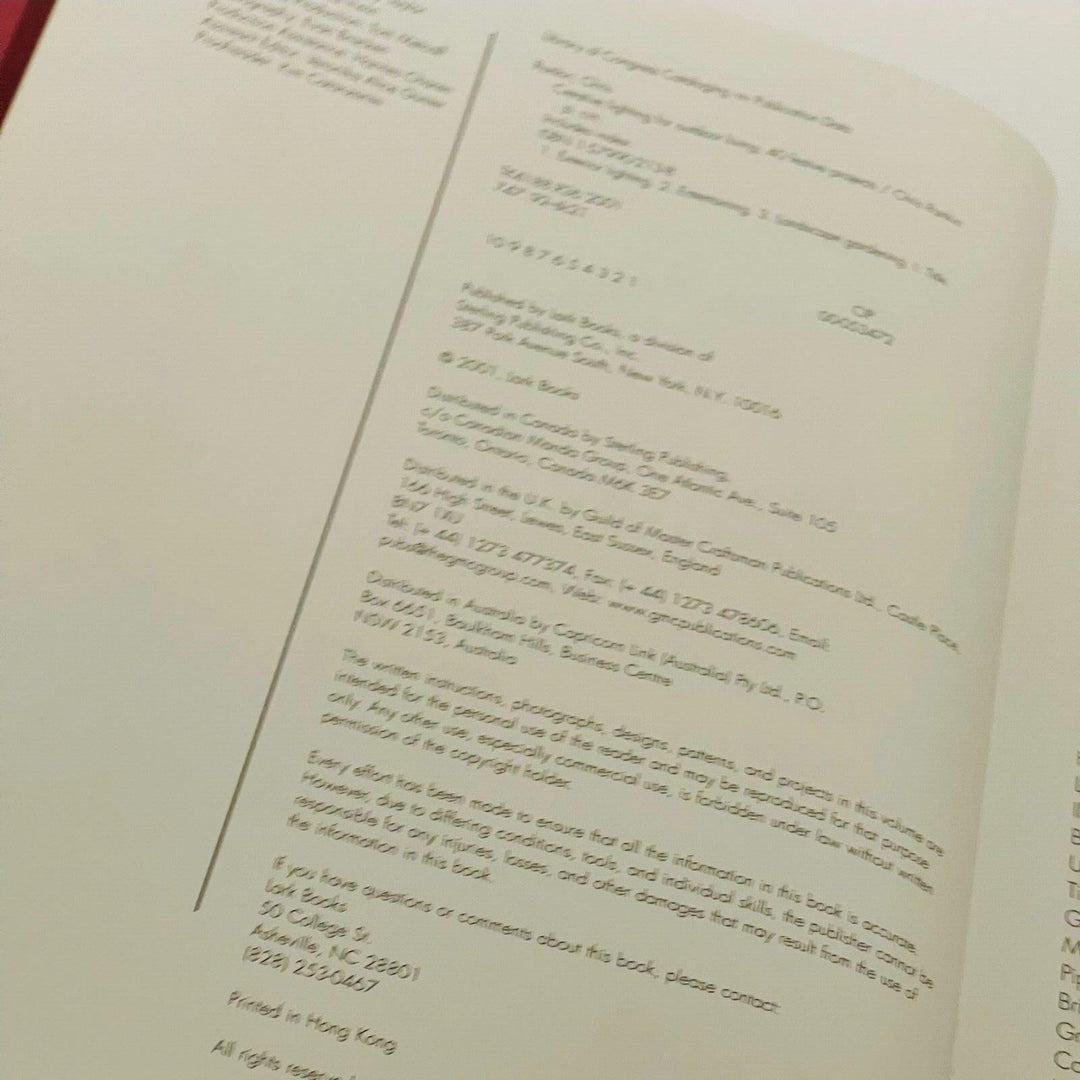 Library of Congress Cataloging-in-Publication Data
Creative lighting for outdoor living: 40 festive projects / Chris Rankin
p. cm.
Includes index.
1. Exterior lighting. 2. Entertaining. 3. Landscape gardening. I. Title.
10 9 8 7 6 5 4 3 2 1
CIP
Published by Lark Books, a division of
Sterling Publishing Co., Inc.
387 Park Avenue South, New York, N.Y. 10016
© 2001, Lark Books
Distributed in Canada by Sterling Publishing,
c/o Canadian Manda Group, One Atlantic Ave., Suite 105
Toronto, Ontario, Canada M6K 3E7
Distributed in the U.K. by Guild of Master Craftsman Publications Ltd., Castle Place,
166 High Street, Lewes, East Sussex, England
BN7 1XU
Tel: (+ 44) 1273 477374, Fax: (+ 44) 1273 478606, Email:
pubs@thegmcgroup.com, Web: www.gmcpublications.com
Distributed in Australia by Capricorn Link (Australia) Pty Ltd., P.O.
Box 6651, Baulkham Hills, Business Centre
NSW 2153, Australia
The written instructions, photographs, designs, patterns, and projects in this volume are
intended for the personal use of the reader and may be reproduced for that purpose
only. Any other use, especially commercial use, is forbidden under law without written
permission of the copyright holder.
Every effort has been made to ensure that all the information in this book is accurate.
However, due to differing conditions, tools, and individual skills, the publisher cannot be
responsible for any injuries, losses, and other damages that may result from the use of
the information in this book.
If you have questions or comments about this book, please contact:
Lark Books
50 College St.
Asheville, NC 28801
(828) 253-0467
Printed in Hong Kong
All rights